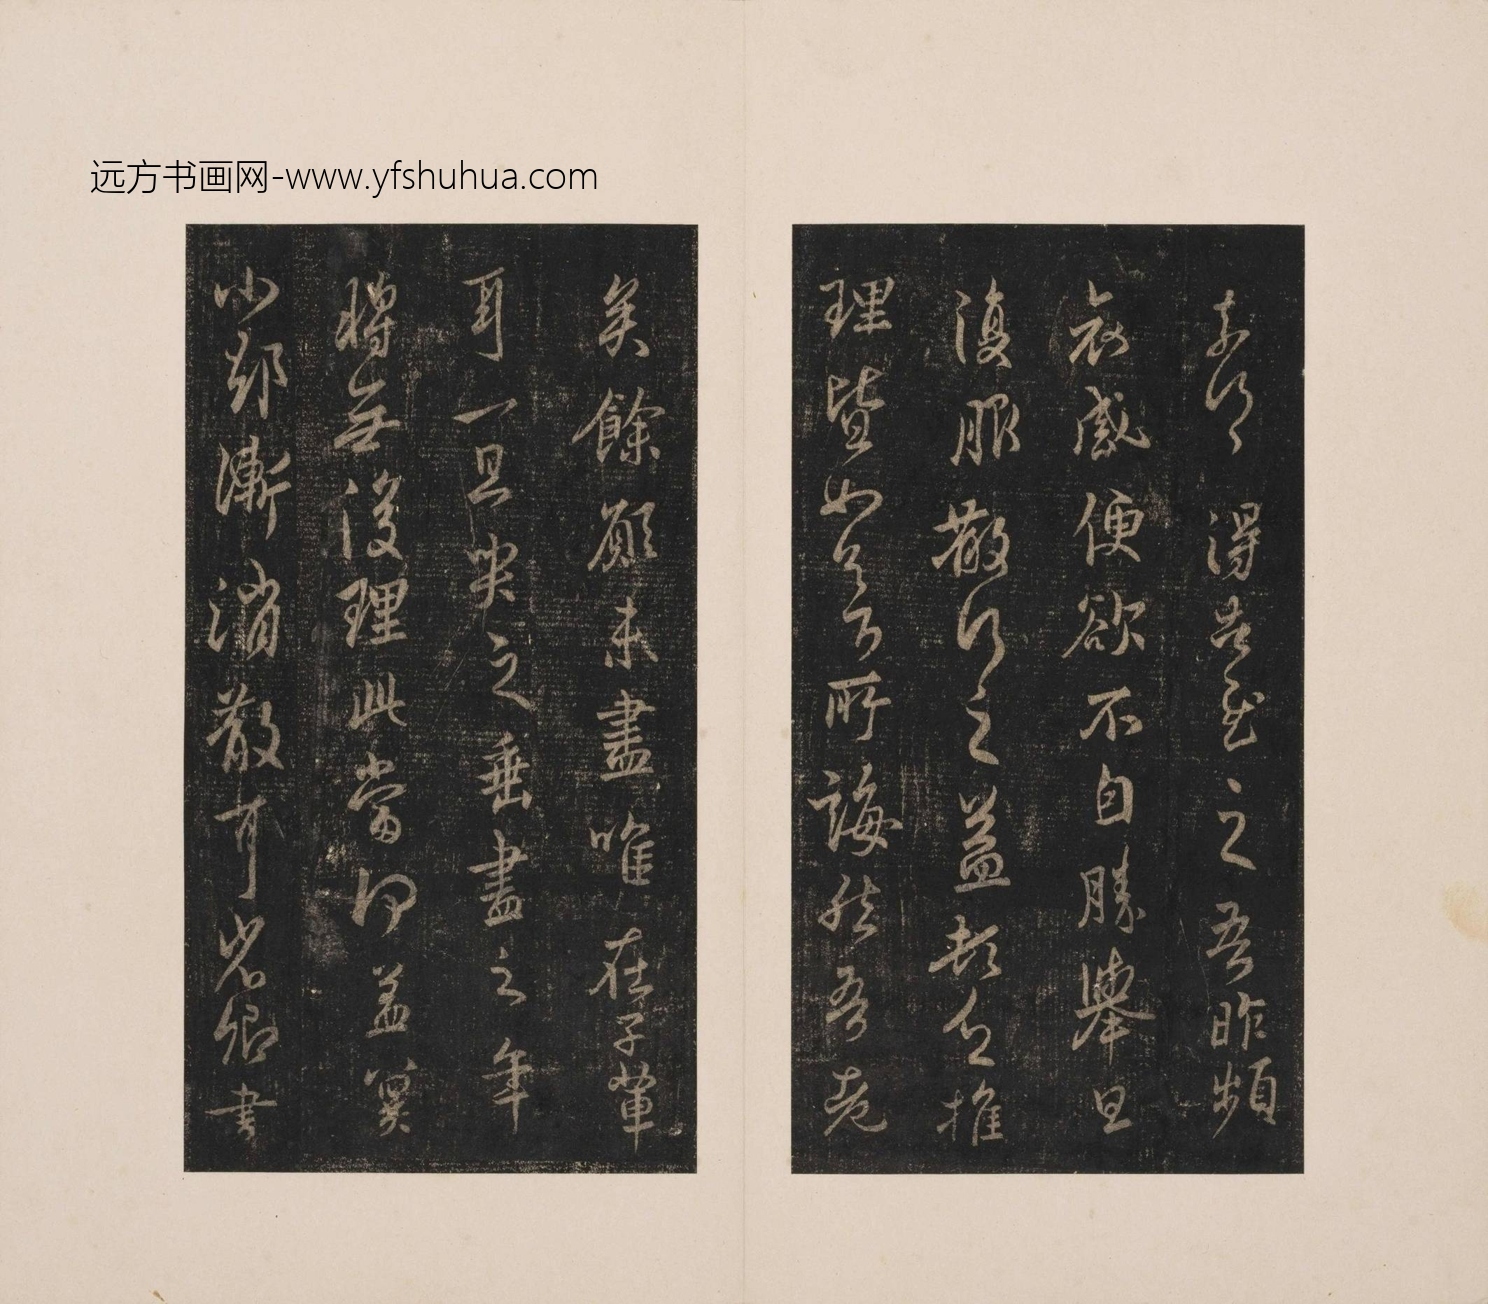 远方书画网-www.yfshuhua.com
前行 得告慰之吾昨頻
哀感便欲不自勝舉旦
復服散行之益頓乏推
理皆如足下所誨然吾老
矣餘願未盡唯在子輩
耳一旦哭之垂盡之年
將無復理此當何益冀
小卻漸消散耳省卿書